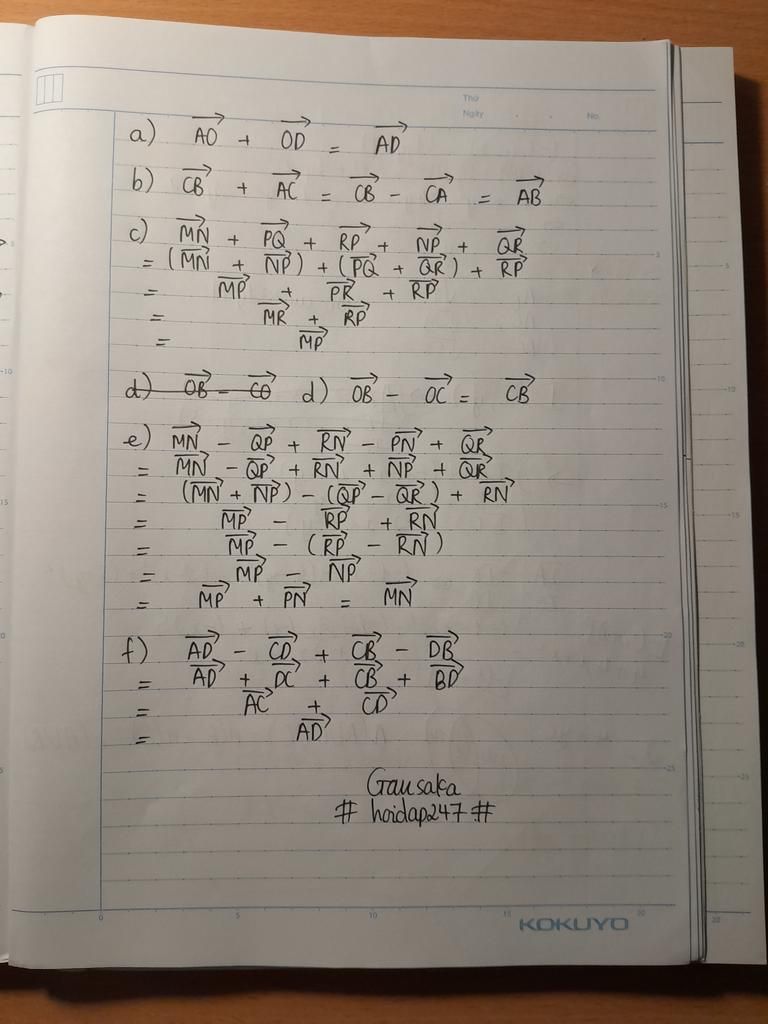 Thứ
Ngày . . No.
a) $\overrightarrow{AO} + \overrightarrow{OD} = \overrightarrow{AD}$
b) $\overrightarrow{CB} + \overrightarrow{AC} = \overrightarrow{CB} - \overrightarrow{CA} = \overrightarrow{AB}$
c) $\overrightarrow{MN} + \overrightarrow{PQ} + \overrightarrow{RP} + \overrightarrow{NP} + \overrightarrow{QR}$
$= (\overrightarrow{MN} + \overrightarrow{NP}) + (\overrightarrow{PQ} + \overrightarrow{QR}) + \overrightarrow{RP}$
$= \overrightarrow{MP} + \overrightarrow{PR} + \overrightarrow{RP}$
$= \overrightarrow{MR} + \overrightarrow{RP}$
$= \overrightarrow{MP}$
~~d) $\overrightarrow{OB} - \overrightarrow{CO}$~~ d) $\overrightarrow{OB} - \overrightarrow{OC} = \overrightarrow{CB}$
e) $\overrightarrow{MN} - \overrightarrow{QP} + \overrightarrow{RN} - \overrightarrow{PN} + \overrightarrow{QR}$
$= \overrightarrow{MN} - \overrightarrow{QP} + \overrightarrow{RN} + \overrightarrow{NP} + \overrightarrow{QR}$
$= (\overrightarrow{MN} + \overrightarrow{NP}) - (\overrightarrow{QP} - \overrightarrow{QR}) + \overrightarrow{RN}$
$= \overrightarrow{MP} - \overrightarrow{RP} + \overrightarrow{RN}$
$= \overrightarrow{MP} - (\overrightarrow{RP} - \overrightarrow{RN})$
$= \overrightarrow{MP} - \overrightarrow{NP}$
$= \overrightarrow{MP} + \overrightarrow{PN} = \overrightarrow{MN}$
f) $\overrightarrow{AD} - \overrightarrow{CD} + \overrightarrow{CB} - \overrightarrow{DB}$
$= \overrightarrow{AD} + \overrightarrow{DC} + \overrightarrow{CB} + \overrightarrow{BD}$
$= \overrightarrow{AC} + \overrightarrow{CD}$
$= \overrightarrow{AD}$
Gausaka
# hoidap247 #
0 5 10 15 20
KOKUYO